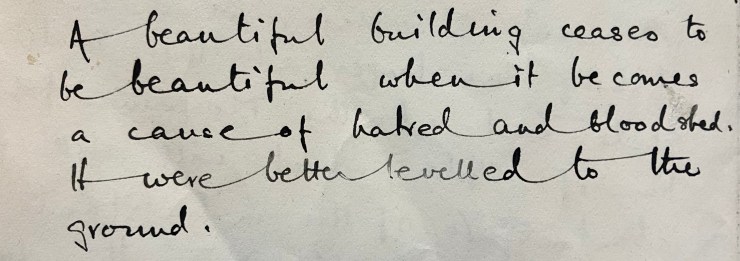 A beautiful building ceases to
be beautiful when it becomes
a cause of hatred and bloodshed.
It were better levelled to the
ground.